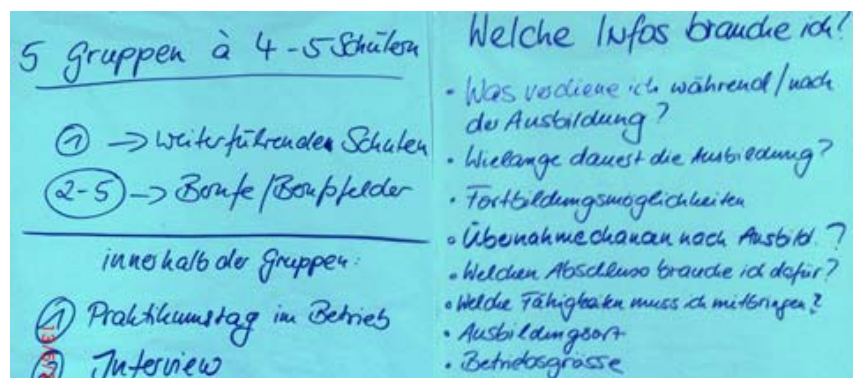 5 Gruppen à 4-5 Schülern
① -> Weiterführenden Schulen
②-5 -> Berufe/Berufsfelder
innerhalb der Gruppen:
① Praktikumstag im Betrieb
② Interview
Welche Infos brauche ich?
• Was verdiene ich während/nach
der Ausbildung?
• Wielange dauert die Ausbildung?
• Fortbildungsmöglichkeiten
• Übernahmechancen nach Ausbild.?
• Welchen Abschluss brauche ich dafür?
• Welche Fähigkeiten muss ich mitbringen?
• Ausbildungsort
• Betriebsgrösse